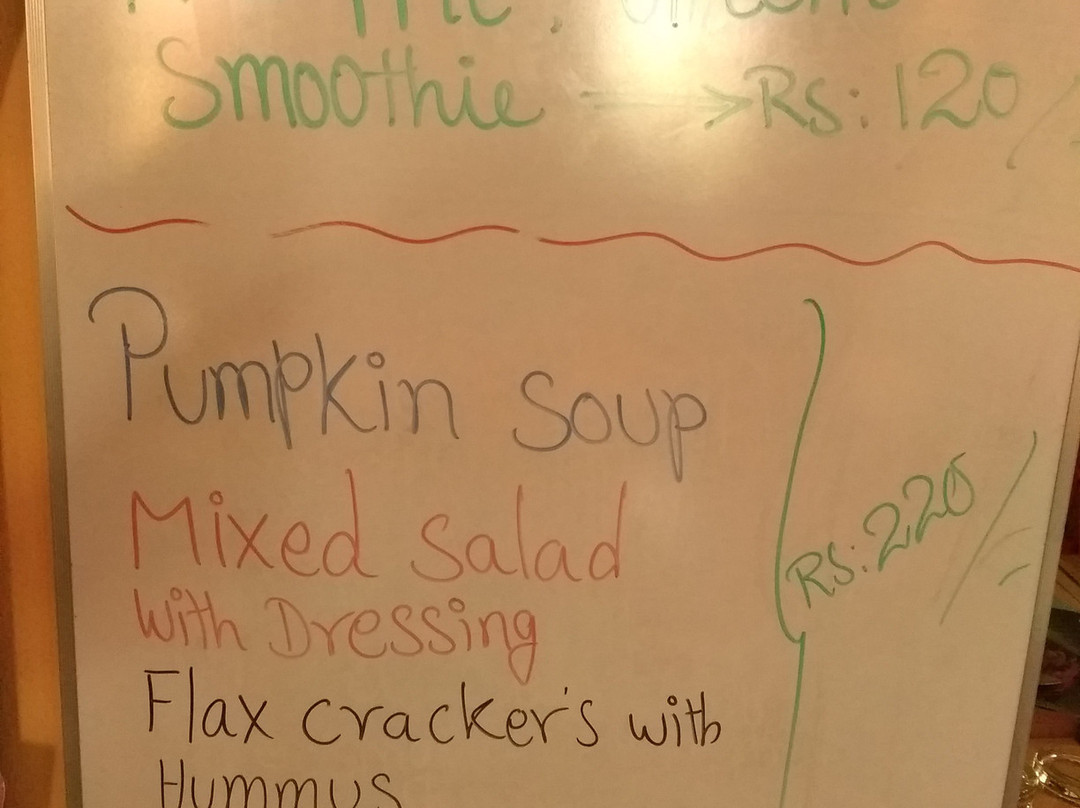 Smoothie → RS: 120/
Pumpkin Soup
Mixed Salad
With Dressing
RS: 220/=
Flax cracker's with
Hummus